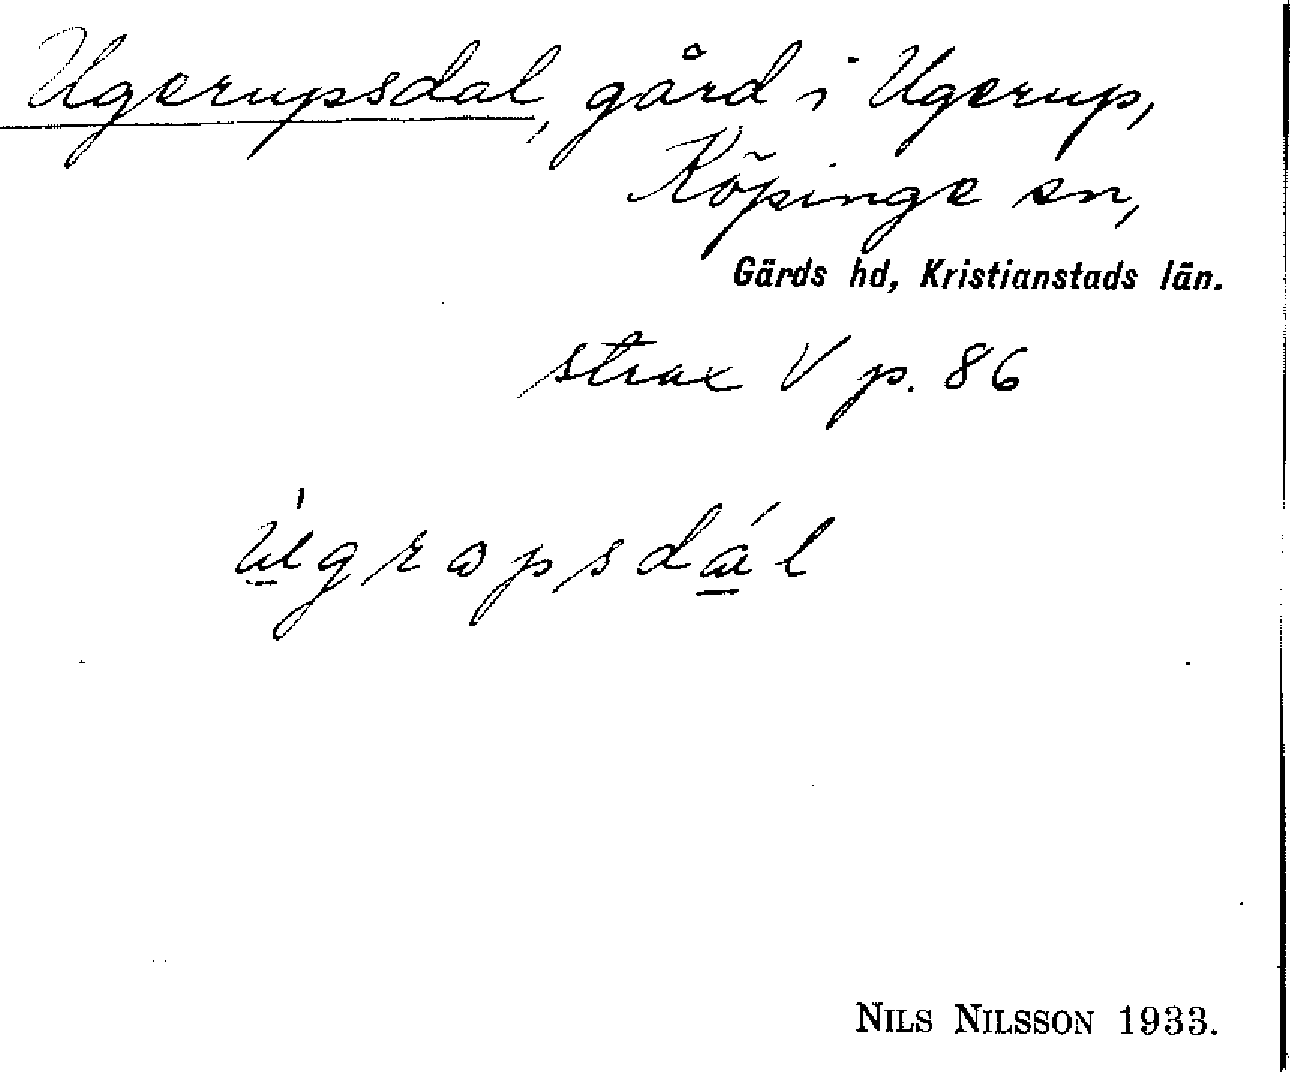 Ugerupsdal, gård i Ugerup,
Köpinge sn,
Gärds hd, Kristianstads län.
strax V p. 86
úgrapsdál
NILS NILSSON 1933.